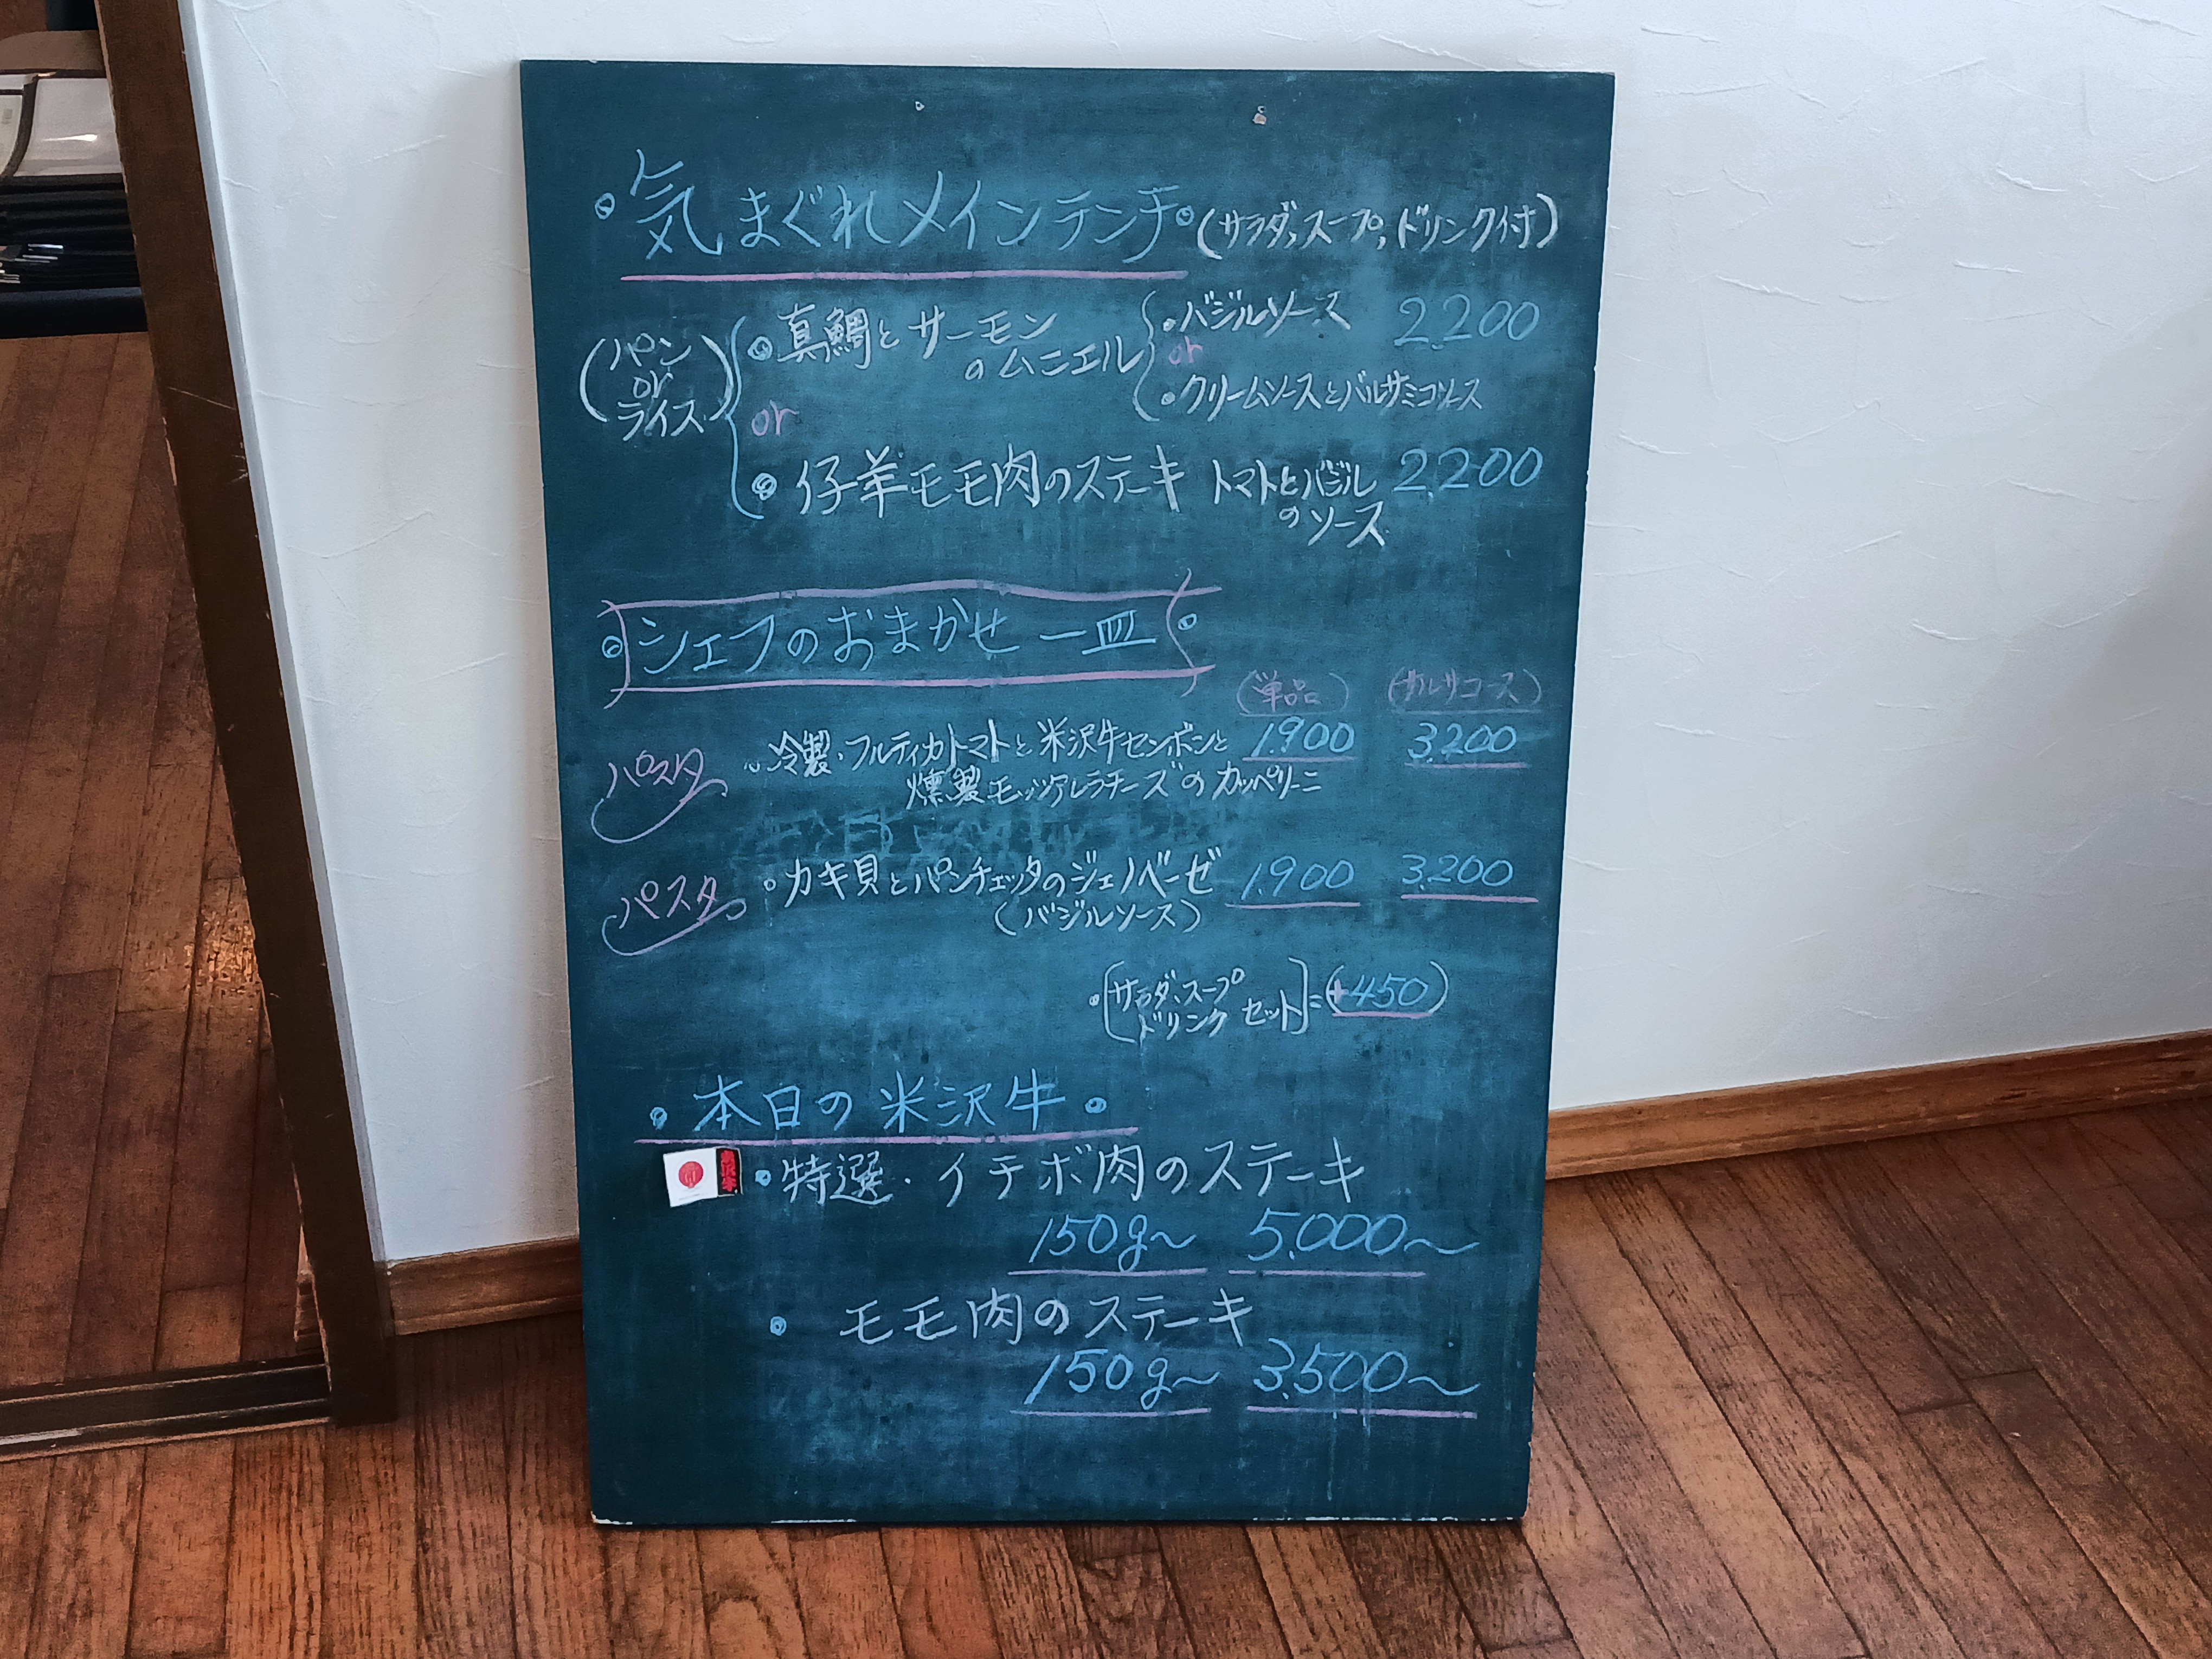 気まぐれメインランチ (サラダ,スープ,ドリンク付)
(パン or ライス)
真鯛とサーモン
のムニエル
・バジルソース 2.200
or
・クリームソースとバルサミコソース
or
仔羊モモ肉のステーキ トマトとバジル 2.200
のソース
シェフのおまかせ 一皿
(単品) (カルサコース)
パスタ ・冷製・フルティカトマトと米沢牛センボンと 1.900 3.200
燻製モッツァレラチーズのカッペリーニ
パスタ ・カキ貝とパンチェッタのジェノベーゼ 1.900 3.200
(バジルソース)
・[サラダ、スープ
ドリンク セット]=(+450)
本日の米沢牛
・特選・イチボ肉のステーキ
150g~ 5.000~
・モモ肉のステーキ
150g~ 3.500~